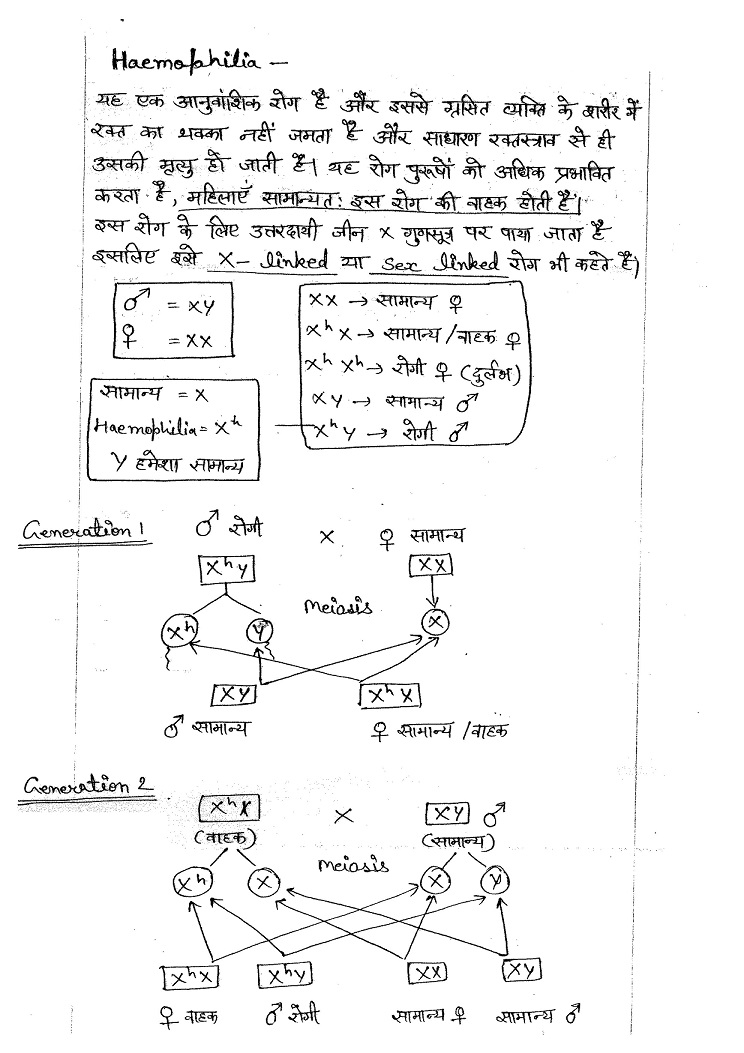 Haemophilia –
यह एक आनुवांशिक रोग है और इससे ग्रसित व्यक्ति के शरीर में
रक्त का थक्का नहीं जमता है और साधारण रक्तस्त्राव से ही
उसकी मृत्यु हो जाती है। यह रोग पुरूषों को अधिक प्रभावित
करता है, महिलाएँ सामान्यत: इस रोग की वाहक होती हैं।
इस रोग के लिए उत्तरदायी जीन X गुणसूत्र पर पाया जाता है
इसलिए इसे X- linked या sex linked रोग भी कहते हैं।
♂ = XY
♀ = XX
XX → सामान्य ♀
XʰX → सामान्य /वाहक ♀
XʰXʰ → रोगी ♀ (दुर्लभ)
XY → सामान्य ♂
XʰY → रोगी ♂
सामान्य = X
Haemophilia = Xʰ
Y हमेशा सामान्य
Generation 1 ♂ रोगी X ♀ सामान्य
XʰY XX
Meiasis
Xʰ Y X
XY XʰX
♂ सामान्य ♀ सामान्य /वाहक
Generation 2
XʰX X XY ♂
(वाहक) (सामान्य)
Meiasis
Xʰ X X Y
XʰX XʰY XX XY
♀ वाहक ♂ रोगी सामान्य ♀ सामान्य ♂